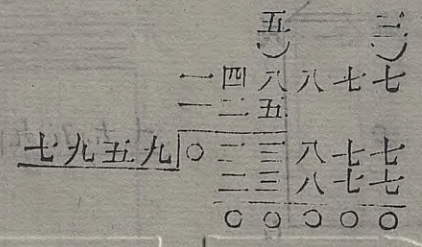 五) 三)
一四八八七七
一二五
七九五九 〇二三八七七
二三八七七
〇〇〇〇〇